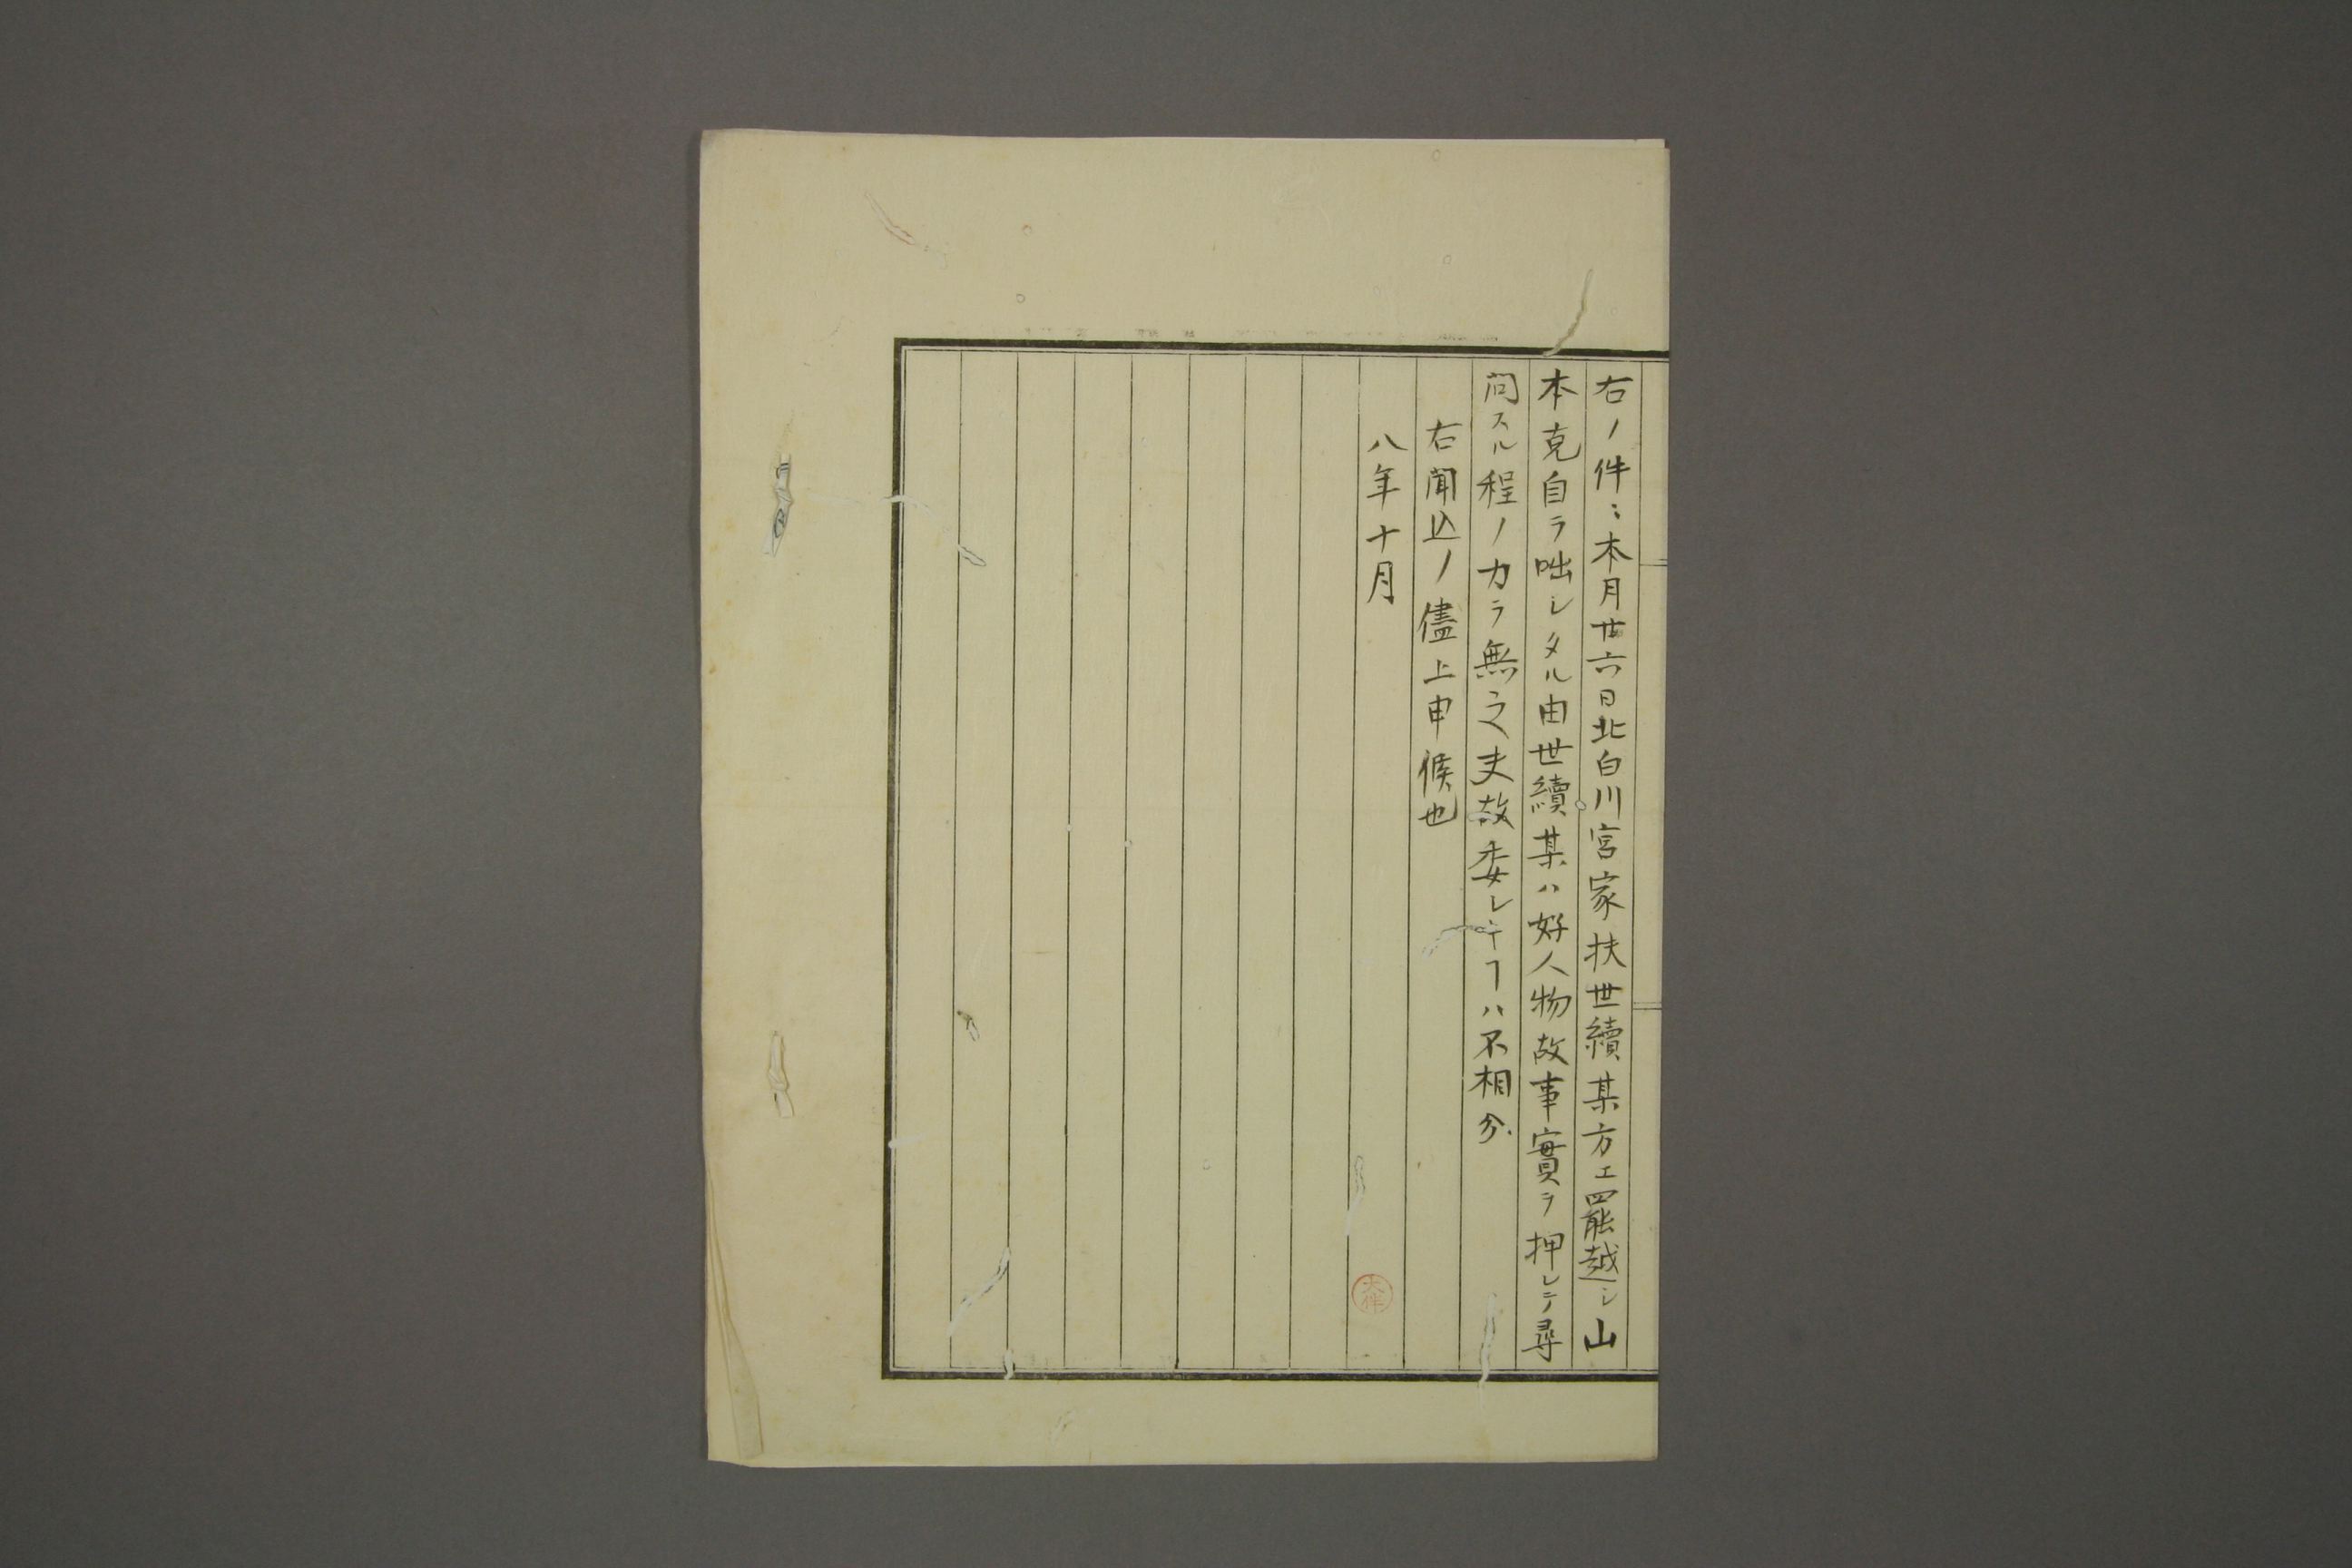 右ノ件ニ本月廿六日北白川宮家扶世續某方エ罷越シ山
本克自ラ咄シタル由世續某ハ好人物故事實ヲ押シテ尋
問スル程ノカラ無之夫故委シキヿハ不相分
右聞込ノ儘上申候也
八年十月
大伴